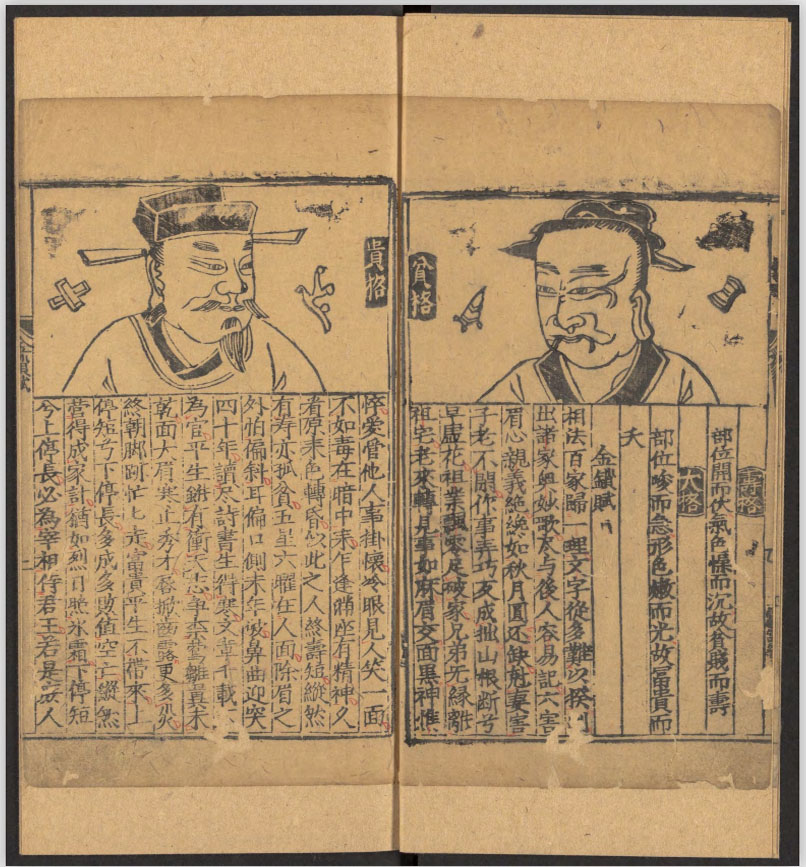 貧格
壽格
部位開而伏氣色慄而沉故貧賤而壽
夭格
部位峻而急形色嫩而光故富貴而
夭
金鎖賦
相法百家歸一理文字從多難以揆刪
出諸家奥妙歌尽与後人容易記六害
眉心親義絶纔如秋月圓还缺尅妻害
子老不閑作事弄巧反成拙山根断兮
早虛花祖業飄零定破家兄弟无縁離
祖宅老來轉見事如麻眉交面黒神憔
貴格
悴爱管他人事掛懷冷眼見人笑一面
不如毒在暗中来乍逢滿座有精神久
看原来色轉昏似此之人終壽短縱然
有寿亦孤貧五星六曜在人面除眉之
外怕偏斜耳偏口側末年破鼻曲迎突
四十年讀尽詩書生得寒文章千載不
為官平生雖有衝天志争柰鸞雛翼未
乾面大眉寒止秀才唇掀齒露更多災
終朝脚跡忙匕走富貴平生不帶來上
停短兮下停長多成多敗值空亡縱然
營得成家計猶如烈日照氷霜下停短
今上停長必為宰相侍君王若是庶人